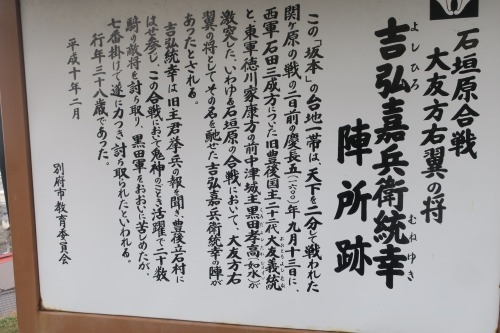 石垣原合戦
大友方右翼の将
よしひろ
むねゆき
吉弘嘉兵衛統幸
陣所跡
この「坂本」の台地一帯は、天下を二分して戦われた
関ヶ原の戦の二日前の慶長五(一六〇〇)年九月十三日に、
西軍石田三成方についた旧豊後国主二十二代大友義統
と、東軍徳川家康方の前中津城主黒田孝高如水が
激突した、いわゆる石垣原の合戦において、大友方右
翼の将としてその名を馳せた吉弘嘉兵衛統幸の陣が
あったとされる。
吉弘統幸は旧主君挙兵の報を聞き、豊後立石村に
はせ参じ、この合戦において鬼神のごとき活躍で二十数
騎の敵将を討ち取り、黒田軍をおおいに苦しめたが、
七番掛けで遂に力つき、討ち取られたといわれる。
行年三十八歳であった。
平成十年二月
別府市教育委員会